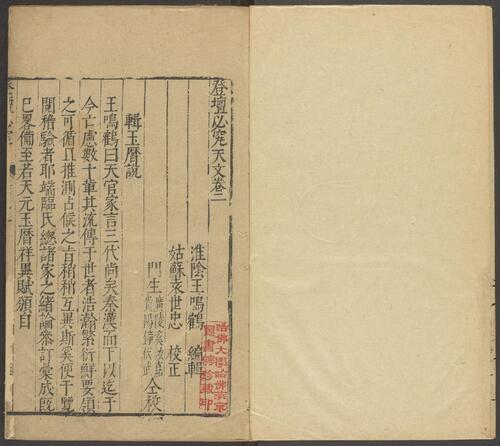 登壇必究天文卷二
淮陰王鳴鶴 編輯
姑蘇袁世忠 校正
門生 全校
輯玉曆說
王鳴鶴曰天官家言三代尚矣秦漢而下以迄于
今亡慮數十輩其流傳于世者浩瀚繁衍鮮要領
之可循且推測占候之旨稍稍互異斯奚便于覽
閱稽驗者耶端臨氏總諸家之緒論叅訂彙成既
已畧備至若天元玉曆祥異賦頒自
哈佛大學哈佛燕京
圖書館珍藏印